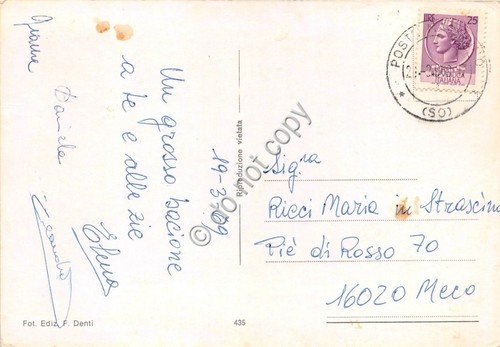 Un grosso bacione
a te e alle zie
Elena
Gianna
Daniela
19-3-69
Fot. Ediz. F. Denti
435
Riproduzione vietata
do not copy
LIRE 25
ITALIANA
POST
(SO)
Sig.ra
Ricci Maria in Strascina
Piè di Rosso 70
16020 Meco